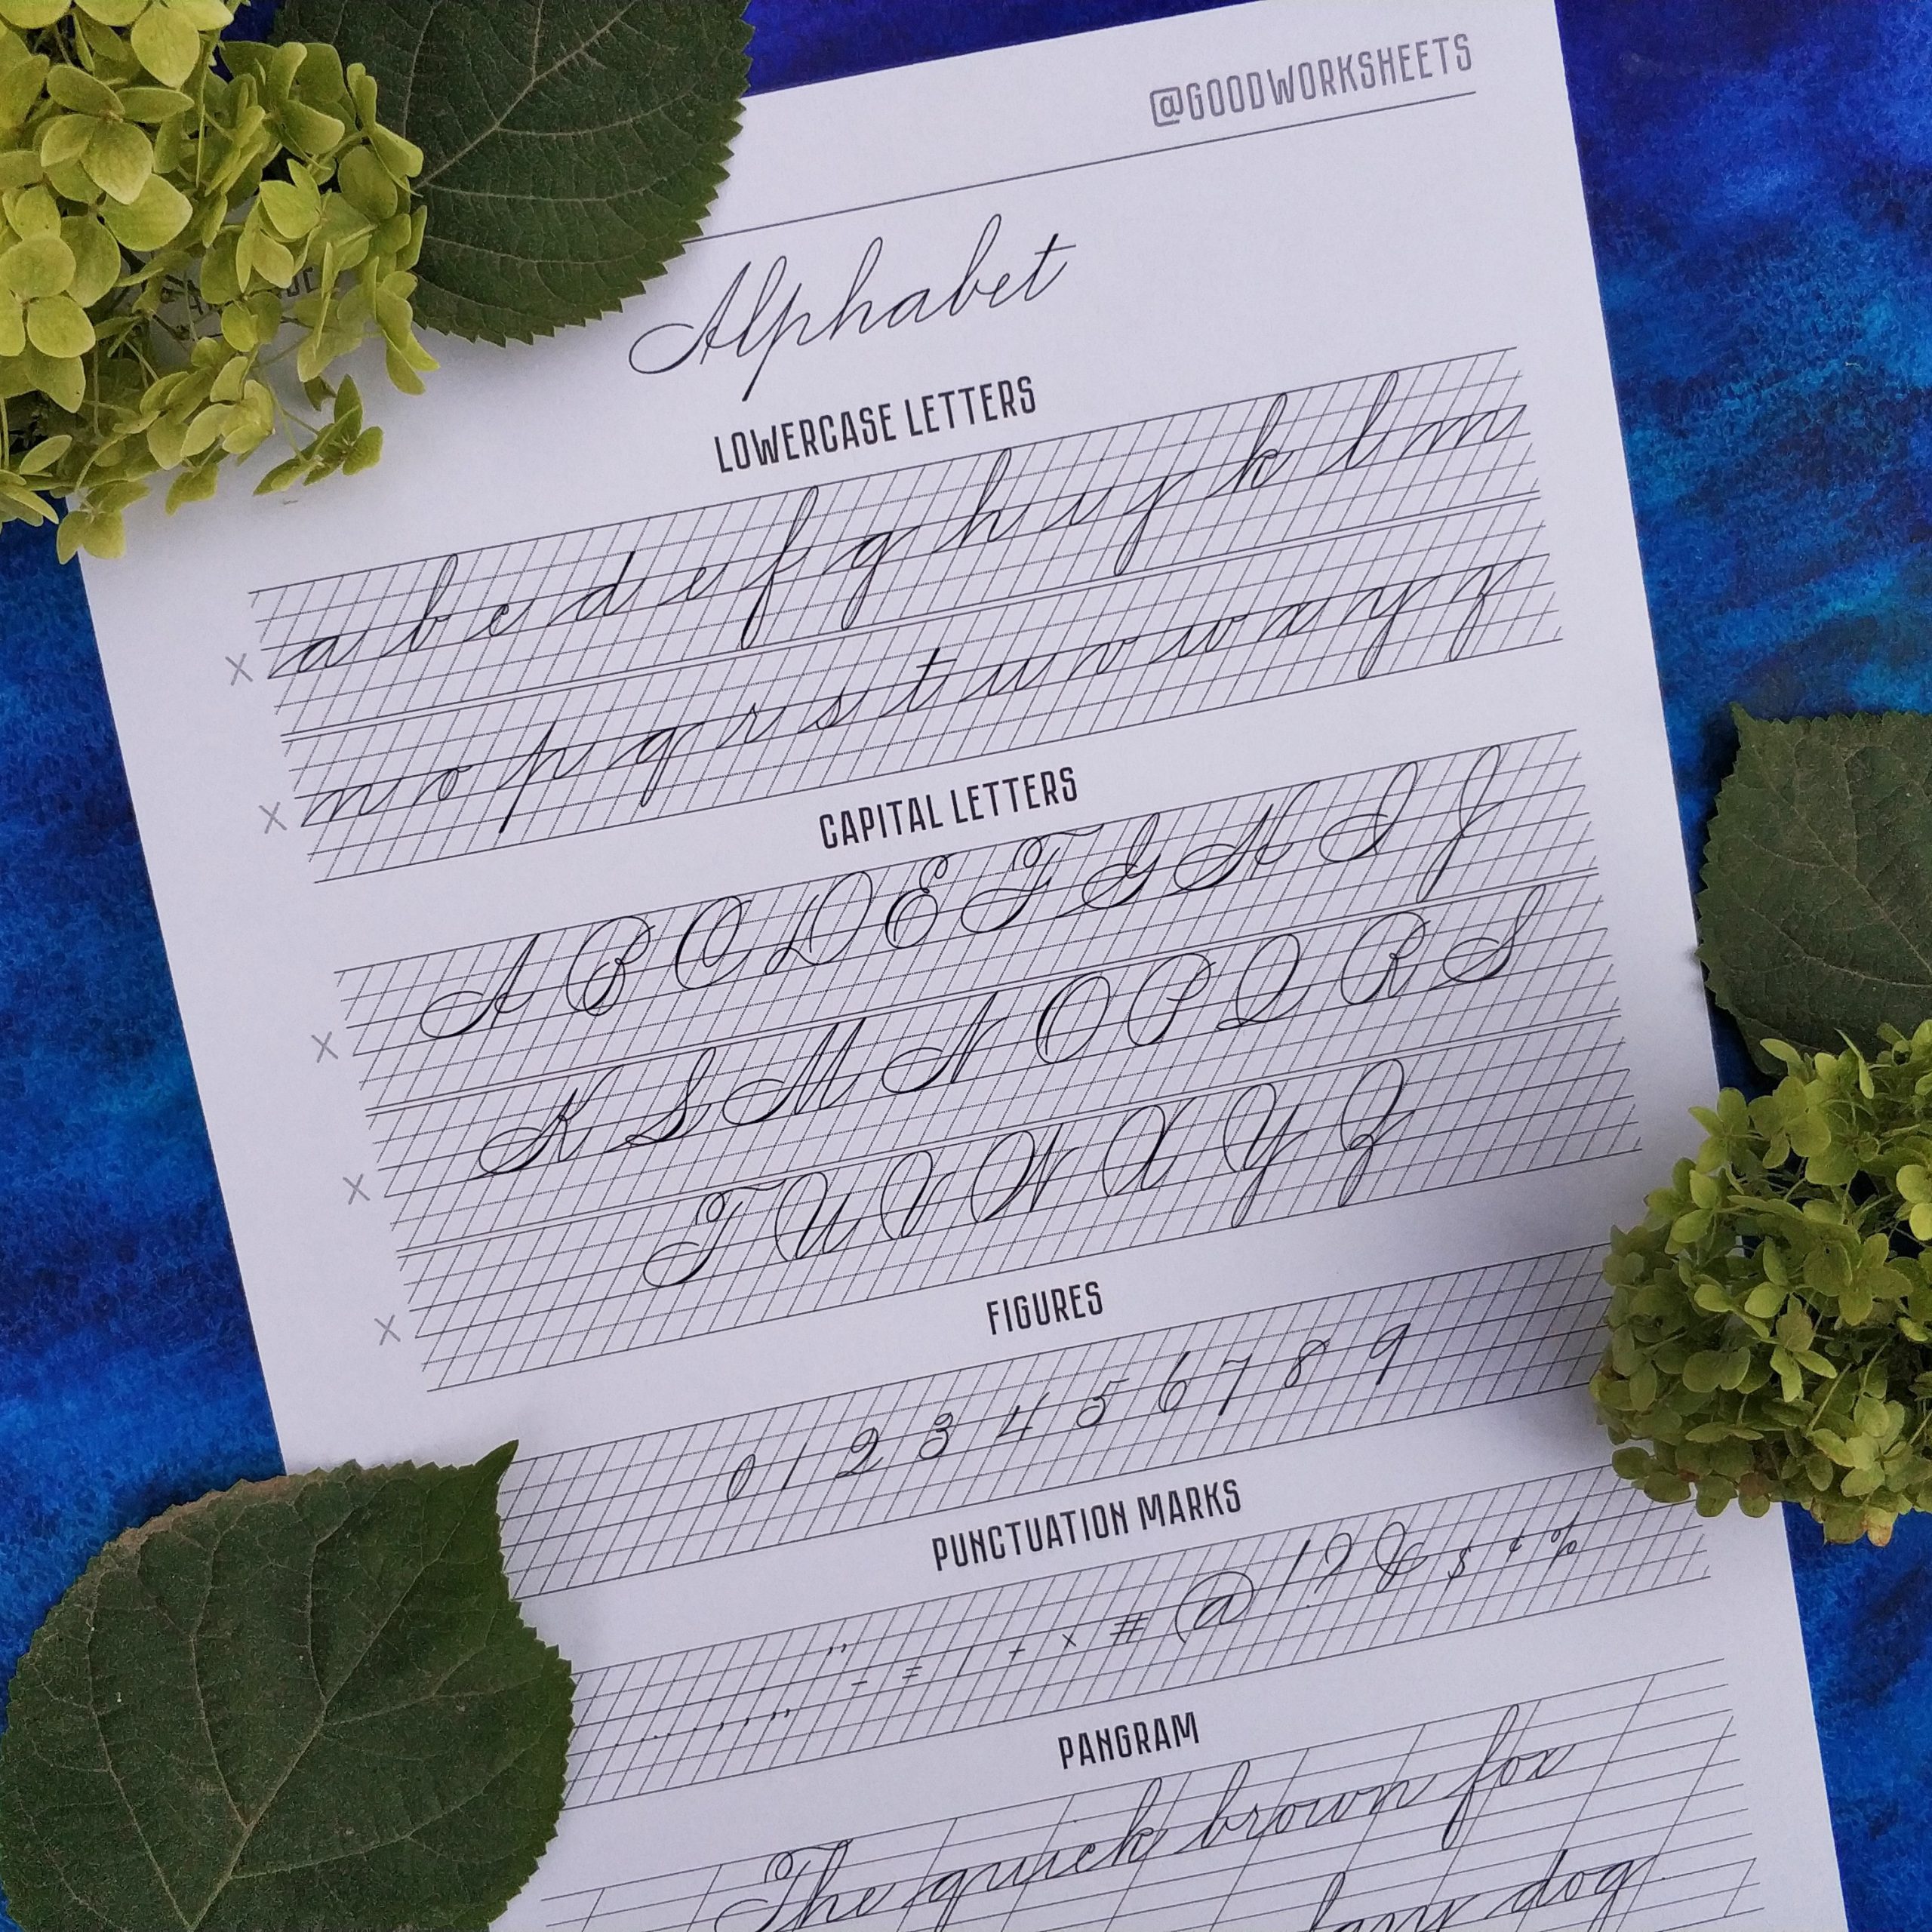 @GOODWORKSHEETS
Alphabet
LOWERCASE LETTERS
x a b c d e f g h i j k l m
x n o p q r s t u v w x y z
CAPITAL LETTERS
x A B C D E F G H I J
x K L M N O P Q R S
x T U V W X Y Z
FIGURES
0 1 2 3 4 5 6 7 8 9
PUNCTUATION MARKS
. , : ; ' " " - = / + × # @ ! ? & $ ¢ %
PANGRAM
The quick brown fox
lazy dog.